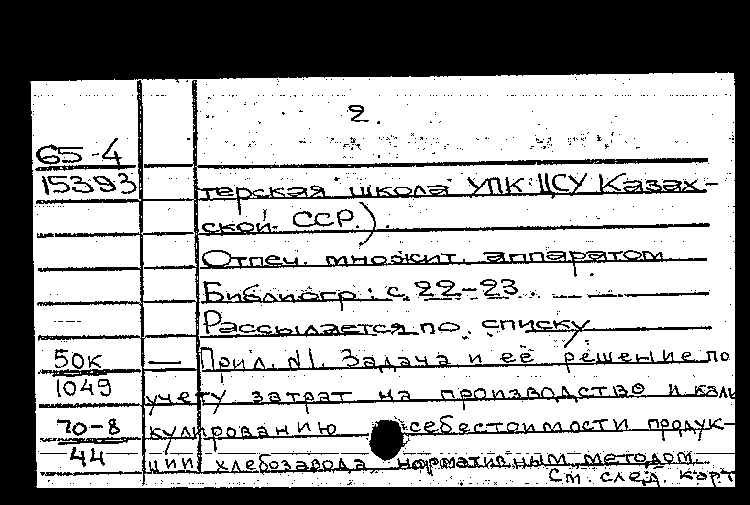 2.
65-4
15393 терская школа УПК ЦСУ Казах-
ской ССР.).
Отпеч. множит. аппаратом
Библиогр: с. 22-23.
Рассылается по списку
50к — Прил. №1. Задача и её решение по
1049 учету затрат на производство и каль
70-8 кулированию себестоимости продук-
44 ции хлебозавода нормативным методом.
См. след. карт